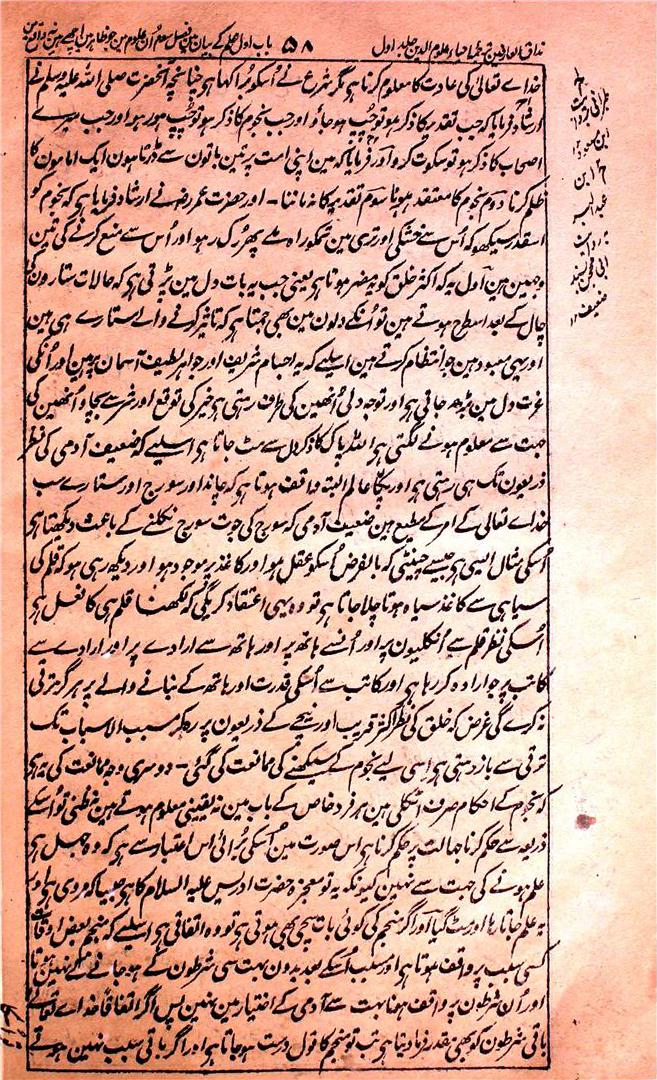 مذاق العارفین ترجمہ احیاء علوم الدین جلد اول
۵۸
باب اول علم کے بیان میں فصل سوم ان علوم مین جو ظاہر مین اچھے ہین
خداے تعالیٰ کی عادت کا معلوم کرنا ہی مگر شرع نے اُسکو بُرا کہا ہو چنانچہ آنحضرت صلی اللہ علیہ وسلم نے
ارشاد فرمایا کہ جب تقدیر کا ذکر ہو تو چپ ہو جاؤ اور جب نجوم کا ذکر ہو تو چپ ہو رہو اور جب میرے
اصحاب کا ذکر ہو تو سکوت کرو اور فرمایا کہ مین اپنی امت پر تین باتون سے ڈرتا ہون ایک امامون کا
ظلم کرنا دوم نجوم کا معتقد ہونا سوم تقدیر کا نہ ماننا - اور حضرت عمر رضہ نے ارشاد فرمایا ہے کہ نجوم کو
اسقدر سیکھو کہ اُس سے خشکی اور تری مین تمکو راہ ملے پھر رک رہو اور اُس سے منع کرنے کی تین
وجہین ہین اول یہ کہ اکثر خلق کو یہ مضر ہوتا ہی یعنی جب یہ بات دل مین پڑتی ہی کہ حالات ستارون کی
چال کے بعد اسطرح ہوتے ہین تو اُنکے دلون مین بھی جمتا ہی کہ تاثیر کرنے والے ستارے ہی ہین
اور یہی معبود ہین جو انتظام کرتے ہین اسلیے کہ یہ اجسام شریف اور جواہر لطیف آسمان پر ہین اور اُنکی
عزت دل مین بڑھ جاتی ہی اور توجہ دلی اُنھین کی طرف رہتی ہی خیر کی توقع اور شر سے بچاؤ اُنھین کی
جہت سے معلوم ہونے لگتی ہی اللہ پاک کا ذکر دل سے مٹ جاتا ہی اسلیے کہ ضعیف آدمی کی نظر
ذریعون تک ہی رہتی ہی اور پکا عالم البتہ واقف ہوتا ہی کہ چاند اور سورج اور ستارے سب
خداے تعالیٰ کے امر کے مطیع ہین ضعیف آدمی کہ سورج کی جوت سورج نکلنے کے باعث دیکھتا ہی
اُسکی مثال ایسی ہی جیسے چینٹی کہ بالفرض اُسکو عقل ہو اور کاغذ پر موجود ہو اور دیکھ رہی ہو کہ قلم کی
سیاہی سے کاغذ سیاہ ہوتا چلا جاتا ہی تو وہ یہی اعتقاد کریگی کہ لکھنا قلم ہی کا فعل ہی
اُسکی نظر قلم سے اُنگلیون پر اور اُنسے ہاتھ پر اور ہاتھ سے ارادے پر اور ارادے سے
کاتب پر جو ارادہ کر رہا ہی اور کاتب سے اُسکی قدرت اور ہاتھ کے بنانے والے پر ہرگز ترقی
نہ کرے گی غرض کہ خلق کی نظر اکثر قریب اور نیچے کے ذریعون پر رہ کر مسبب الاسباب تک
ترقی سے باز رہتی ہی اِسی لیے نجوم کے سیکھنے کی ممانعت کی گئی - دوسری وجہ ممانعت کی یہ ہی
کہ نجوم کے احکام صرف اٹکلی ہین ہر فرد خاص کے باب مین نہ یقینی معلوم ہوتے ہین نہ ظنی تو اُسکے
ذریعہ سے حکم کرنا جہالت پر حکم کرنا ہی اس صورت مین اُسکی بُرائی اس اعتبار سے ہی کہ وہ جہل ہی
علم ہونے کی جہت سے نہین کیونکہ یہ تو معجزہ حضرت ادریس علیہ السلام کا ہی جیسا کہ مروی ہی اور
یہ علم جاتا رہا اور مٹ گیا اور اگر منجم کی کوئی بات سچی بھی ہوتی ہی تو وہ اتفاقی ہی اسلیے کہ منجم بعض اوقات
کسی سبب پر واقف ہوتا ہی اور سبب اُسکے بعد بدون بہت سی شرطون کے ہو جانے کے نہین ہوتا
اور اُن شرطون پر واقف ہونا بہت سے آدمی کے اختیار مین نہین پس اگر اتفاقاً خداے تعالیٰ
باقی شرطون کو بھی مقدر فرما دیتا ہی تب تو منجم کا قول درست ہو جاتا ہی اور اگر باقی سبب نہین ہوتے
ابن مسعود
ضعیف ۱۲